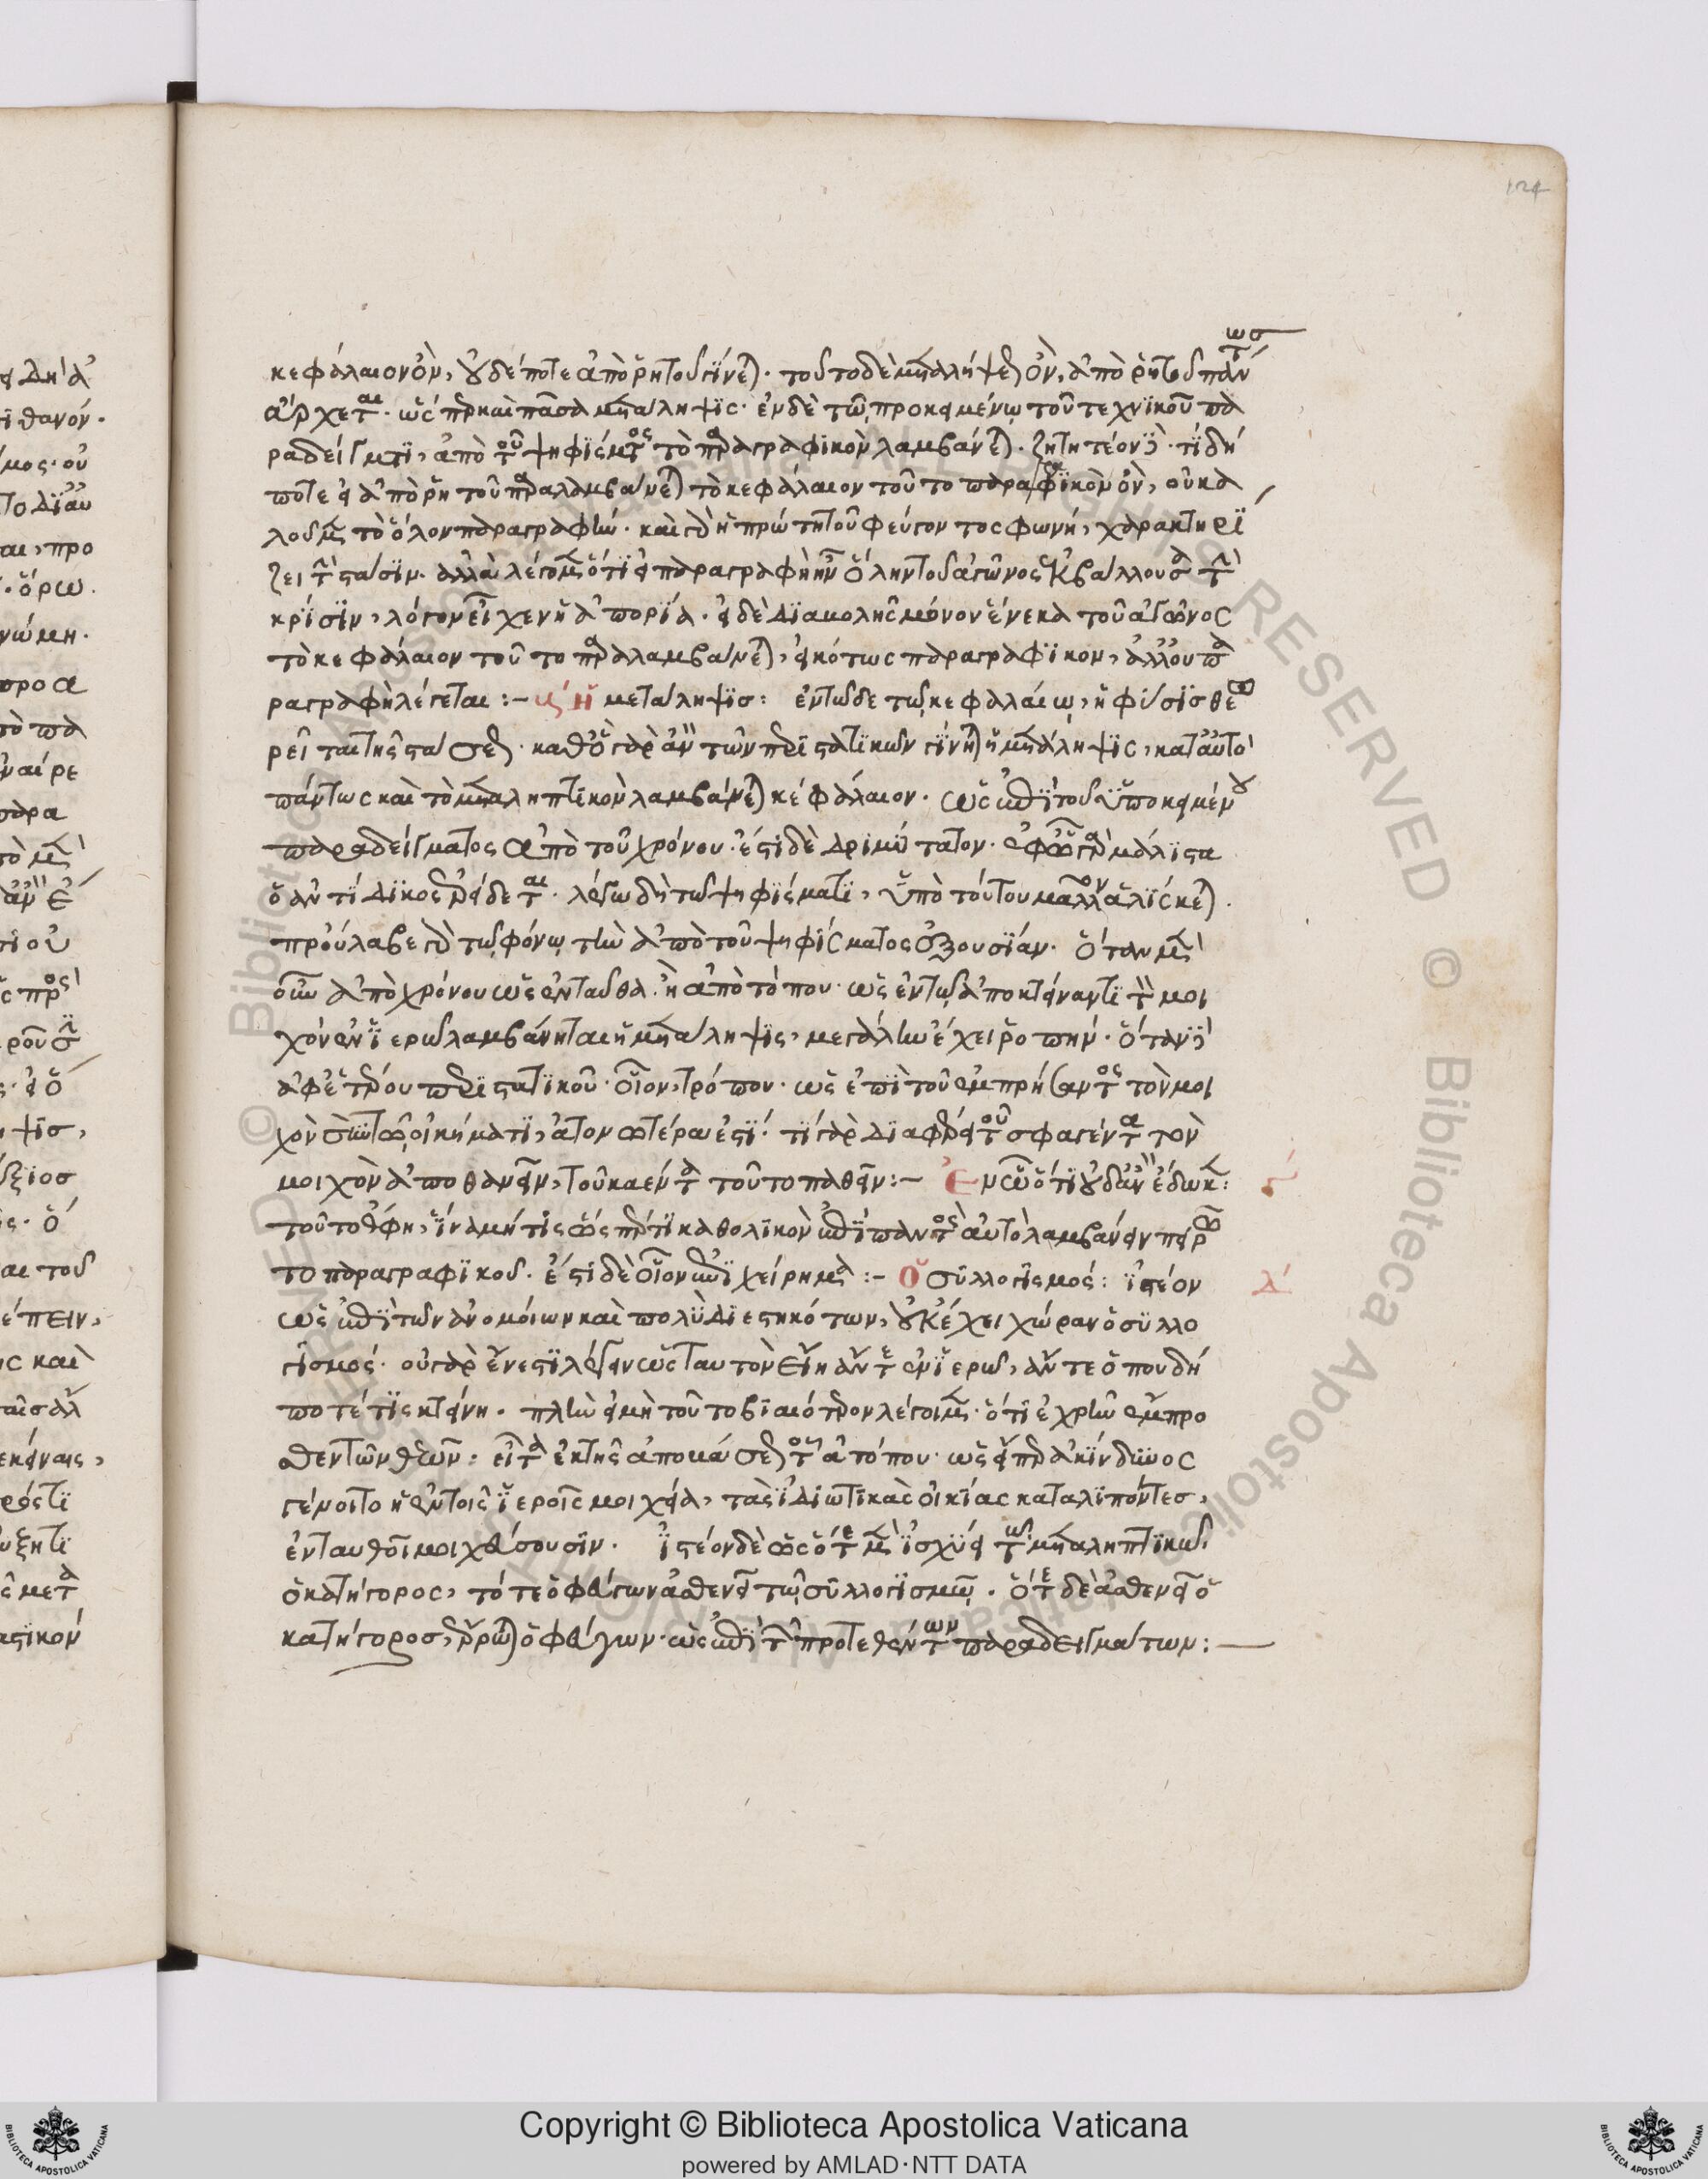 124
κεφάλαιον ὂν, οὐδέποτε ἀπὸ ῥητοῦ γίνεται. τοῦτο δὲ μεταλήψεως ὂν, ἀπὸ ῥητοῦ πάντως
ἄρχεται. ὥσπερ καὶ πᾶσα μετάληψις. ἐν δὲ τῷ προκειμένῳ τοῦ τεχνικοῦ πα
ραδείγματι, ἀπὸ τοῦ ψηφίσματος τὸ παραγραφικὸν λαμβάνεται. ζητητέον τί δή
ποτε εἰ ἀπὸ ῥητοῦ παραλαμβάνεται τὸ κεφάλαιον τοῦτο παραγραφικὸν ὂν, οὐ κα
λοῦμεν τὸ ὅλον παραγραφήν. καὶ γὰρ ἡ πρώτη τοῦ φεύγοντος φωνή, χαρακτηρί
ζει τὴν στάσιν. ἀλλὰ λέγομεν ὅτι εἰ παραγραφὴ ἦν ὅλην τοῦ ἀγῶνος ἐκβάλλουσα τὴν
κρίσιν, λόγον εἶχεν ἡ ἀπορία. εἰ δὲ δι' ἀμολῆς μόνον ἕνεκα τοῦ ἀγῶνος
τὸ κεφάλαιον τοῦτο παραλαμβάνεται, εἰκότως παραγραφικὸν, ἀλλ' οὐ πα
ραγραφὴ λέγεται :– Ἡ μετάληψις: ἐν τῷδε τῷ κεφαλαίῳ, ἡ φύσις θεω
ρεῖται τῆς στάσεως. καθ' ὃ γὰρ ἂν τῶν περιστατικῶν γίνηται ἡ μετάληψις, κατ' αὐτὸ
πάντως καὶ τὸ μεταληπτικὸν λαμβάνεται κεφάλαιον. ὡς ἐπὶ τοῦ ὑποκειμένου
παραδείγματος ἀπὸ τοῦ χρόνου. ἔστι δὲ δριμύτατον. ἐφ' ᾧ γὰρ μάλιστα
ὁ ἀντίδικος ἐρείδεται. λέγω δὴ τῷ ψηφίσματι, ὑπὸ τούτου μᾶλλον ἁλίσκεται.
προὔλαβε γὰρ τῷ φόνῳ τὴν ἀπὸ τοῦ ψηφίσματος ἐξουσίαν. ὅταν μὲν
οὖν ἀπὸ χρόνου ὡς ἐνταῦθα. ἢ ἀπὸ τόπου. ὡς ἐν τῷ ἀποκτείναντι τὸν μοι
χὸν ἐν ἱερῷ λαμβάνηται ἡ μετάληψις, μεγάλην ἔχει ῥοπήν. ὅταν δὲ
ἀφ' ἑτέρου περιστατικοῦ. οἷον, τρόπον. ὡς ἐπὶ τοῦ ἐμπρήσαντος τὸν μοι
χὸν σὺν τῷ οἰκήματι, ἀτονωτέρα ἐστί. τί γὰρ διαφέρει τοῦ σφαγέντα τὸν
μοιχὸν ἀποθανεῖν, τοῦ καέντα τοῦτο παθεῖν :– Ἐν ᾧ ὅτι οὐδ' ἂν ἔδωκε:
τοῦτο ἔφη, ἵνα μή τις ὥσπερ τι καθολικὸν ἐπὶ παντὸς αὐτὸ λαμβάνειν πειρῷ
το παραγραφικοῦ. ἔστι δὲ οἷον ἐπιχείρημα :– Ὁ συλλογισμός: ἰστέον
ὡς ἐπὶ τῶν ἀνομοίων καὶ πολὺ διεστηκότων, οὐκ ἔχει χώραν ὁ συλλο
γισμός. οὐ γὰρ ἔνεστι λέγειν ὡς ταυτὸν εἴη ἄν τε ἐν ἱερῷ, ἄν τε ὅπου δή
ποτέ τις κτείνῃ. πλὴν εἰ μὴ τοῦτο βιαιότερον λέγοιμεν. ὅτι ἐχρῆν ἔμπρο
σθεν τῶν θεῶν: εἶτα ἐκ τῆς ἀποκάσεως τοῦ ἀτόπου. ὡς εἴπερ ἀκίνδυνος
γένοιτο ἡ ἐν τοῖς ἱεροῖς μοιχεία, τὰς ἰδιωτικὰς οἰκίας καταλιπόντες,
ἐνταυθοῖ μοιχεύσουσιν. ἰστέον δὲ ὡς ὅτε μὲν ἰσχύει τῷ μεταληπτικῷ
ὁ κατήγορος, τότε ὁ φεύγων ἀσθενεῖ τῷ συλλογισμῷ. ὅτε δὲ ἀσθενεῖ ὁ
κατήγορος, ἔρρωται ὁ φεύγων. ὡς ἐπὶ τῶν προτεθέντων παραδειγμάτων :—
Copyright © Biblioteca Apostolica Vaticana
powered by AMLAD·NTT DATA